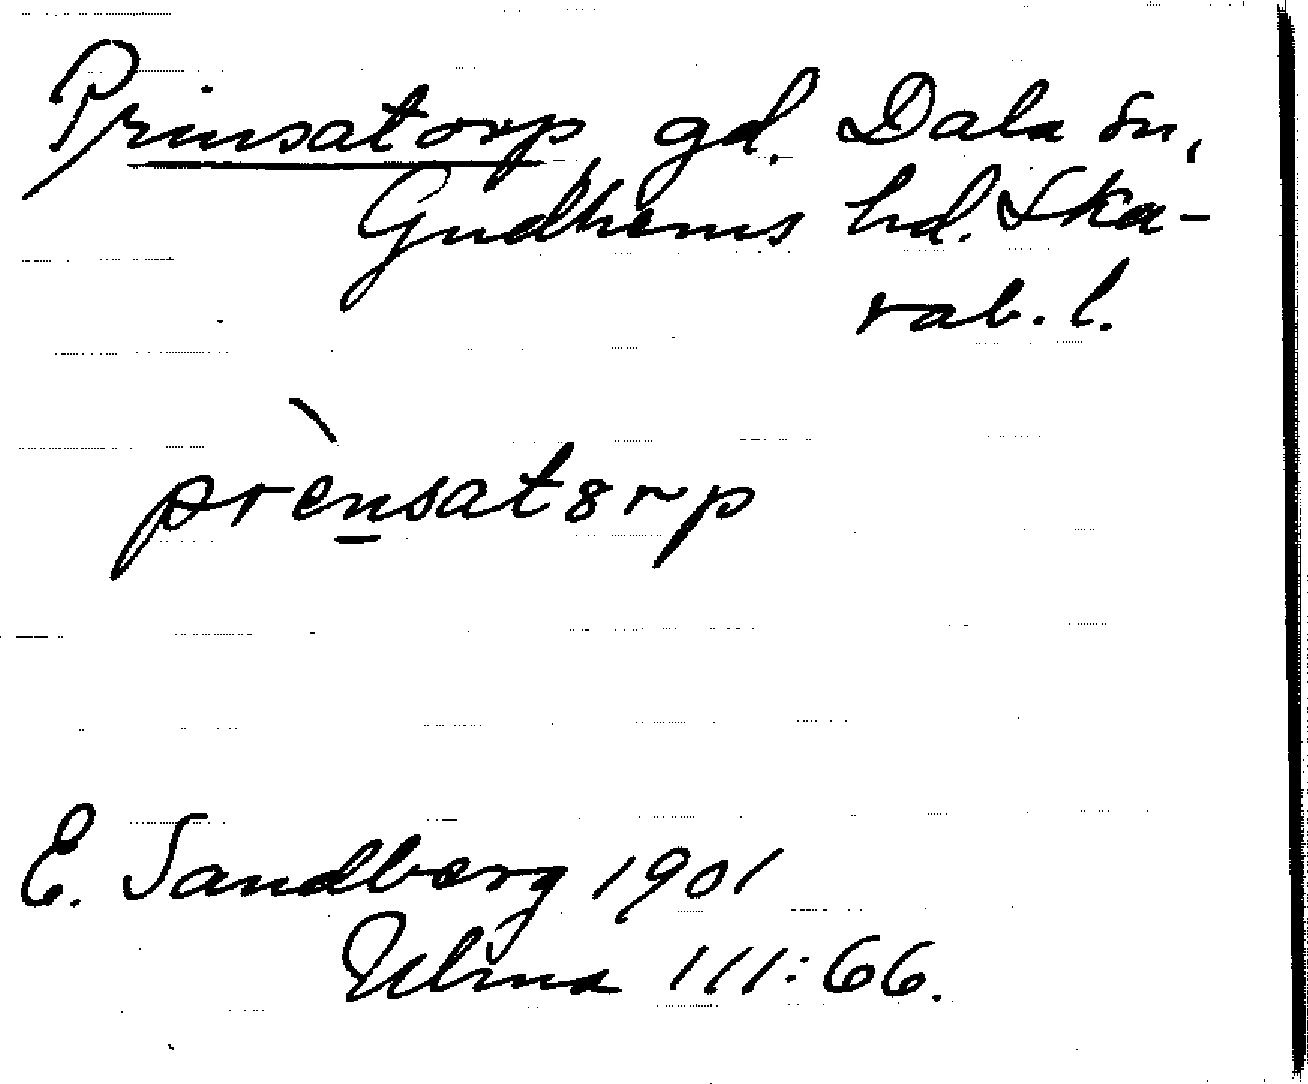 Prinsatorp gd. Dala sn,
Gudhems hd. Ska-
rab. l.
prènsat8rp
E. Sandberg 1901
Ulma 111:66.